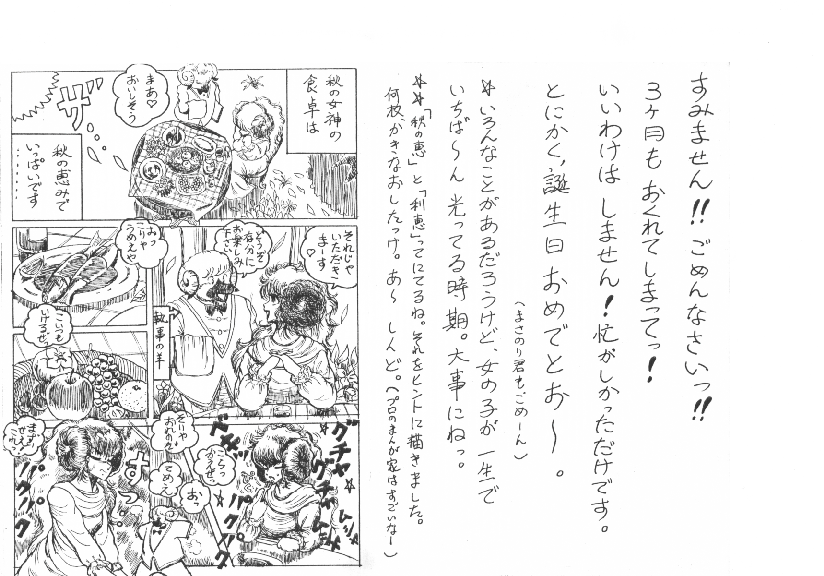 すみません!! ごめんなさいっ!!
3ヶ月も おくれてしまってっ!
いいわけは しません! 忙がしかっただけです。
とにかく、誕生日 おめでとお〜。
(まさのり君もごめーん)
* いろんなことがあるだろうけど、女の子が 一生で
いちば〜ん 光ってる時期。大事にねっ。
** 「秋の恵」と「利恵」ってにてるね。それをヒントに描きました。
何枚、かきなおしたっけ。あ〜 しんど。(プロのまんが家はすごいなー)
秋の女神の
食卓は
まあ♡
おいしそう
ザ
秋の恵みで
いっぱいです
……
それじゃ
いただきまーす♡
どうぞ
存分に
お楽しみ
下さい
執事の羊
こりゃ
うめえや
こいつも
いけるぜ
グチャ
グチャ
ムシャ
ムシャ
パク
パク
おっ
すっ
パク
パク